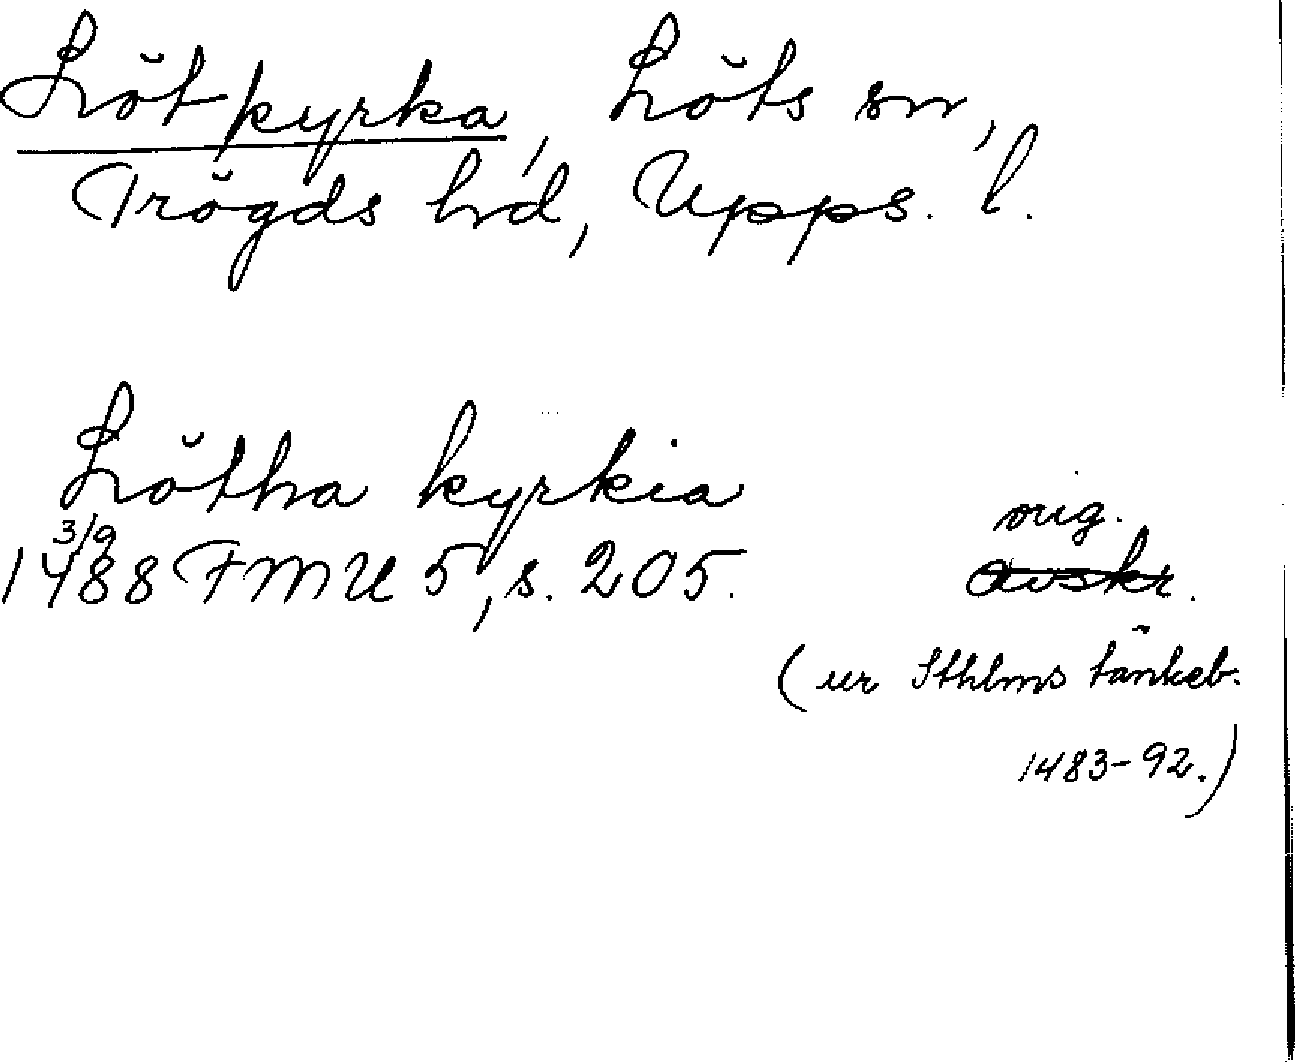 Löt kyrka, Löts sn,
Trögds hd, Upps. l.
Lötha kyrkia
3/9
1488 FMU 5, s. 205.
orig.
avskr.
(ur Sthlms tänkeb.
1483-92.)